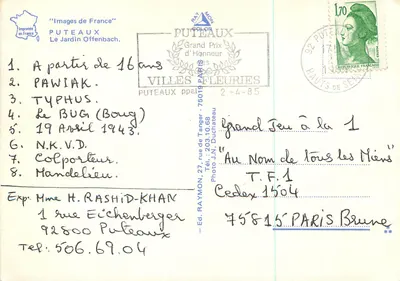 "Images de France"
PUTEAUX
Le Jardin Offenbach.
PUTEAUX
Grand Prix
d'Honneur
VILLES FLEURIES
PUTEAUX PPAL
2-4-85
1,70
1. A partir de 16 ans
2. PAWIAK.
3. TYPHUS.
4. Le BUG (Boug)
5. 19 Avril 1943.
6. N.K.V.D.
7. Colporteur.
8. Mandelieu.
Exp: Mme H. RASHID-KHAN
1 rue Eichenberger
92800 Puteaux
Tel: 506.69.04
— Ed. RAYMON, 27, rue de Tanger - 75019 PARIS
Tél.: 203.10.68
Photo J.N. Duchateau
Grand Jeu à la 1
"Au Nom de tous les Miens"
T.F.1
Cedex 1504
75815 PARIS Brune